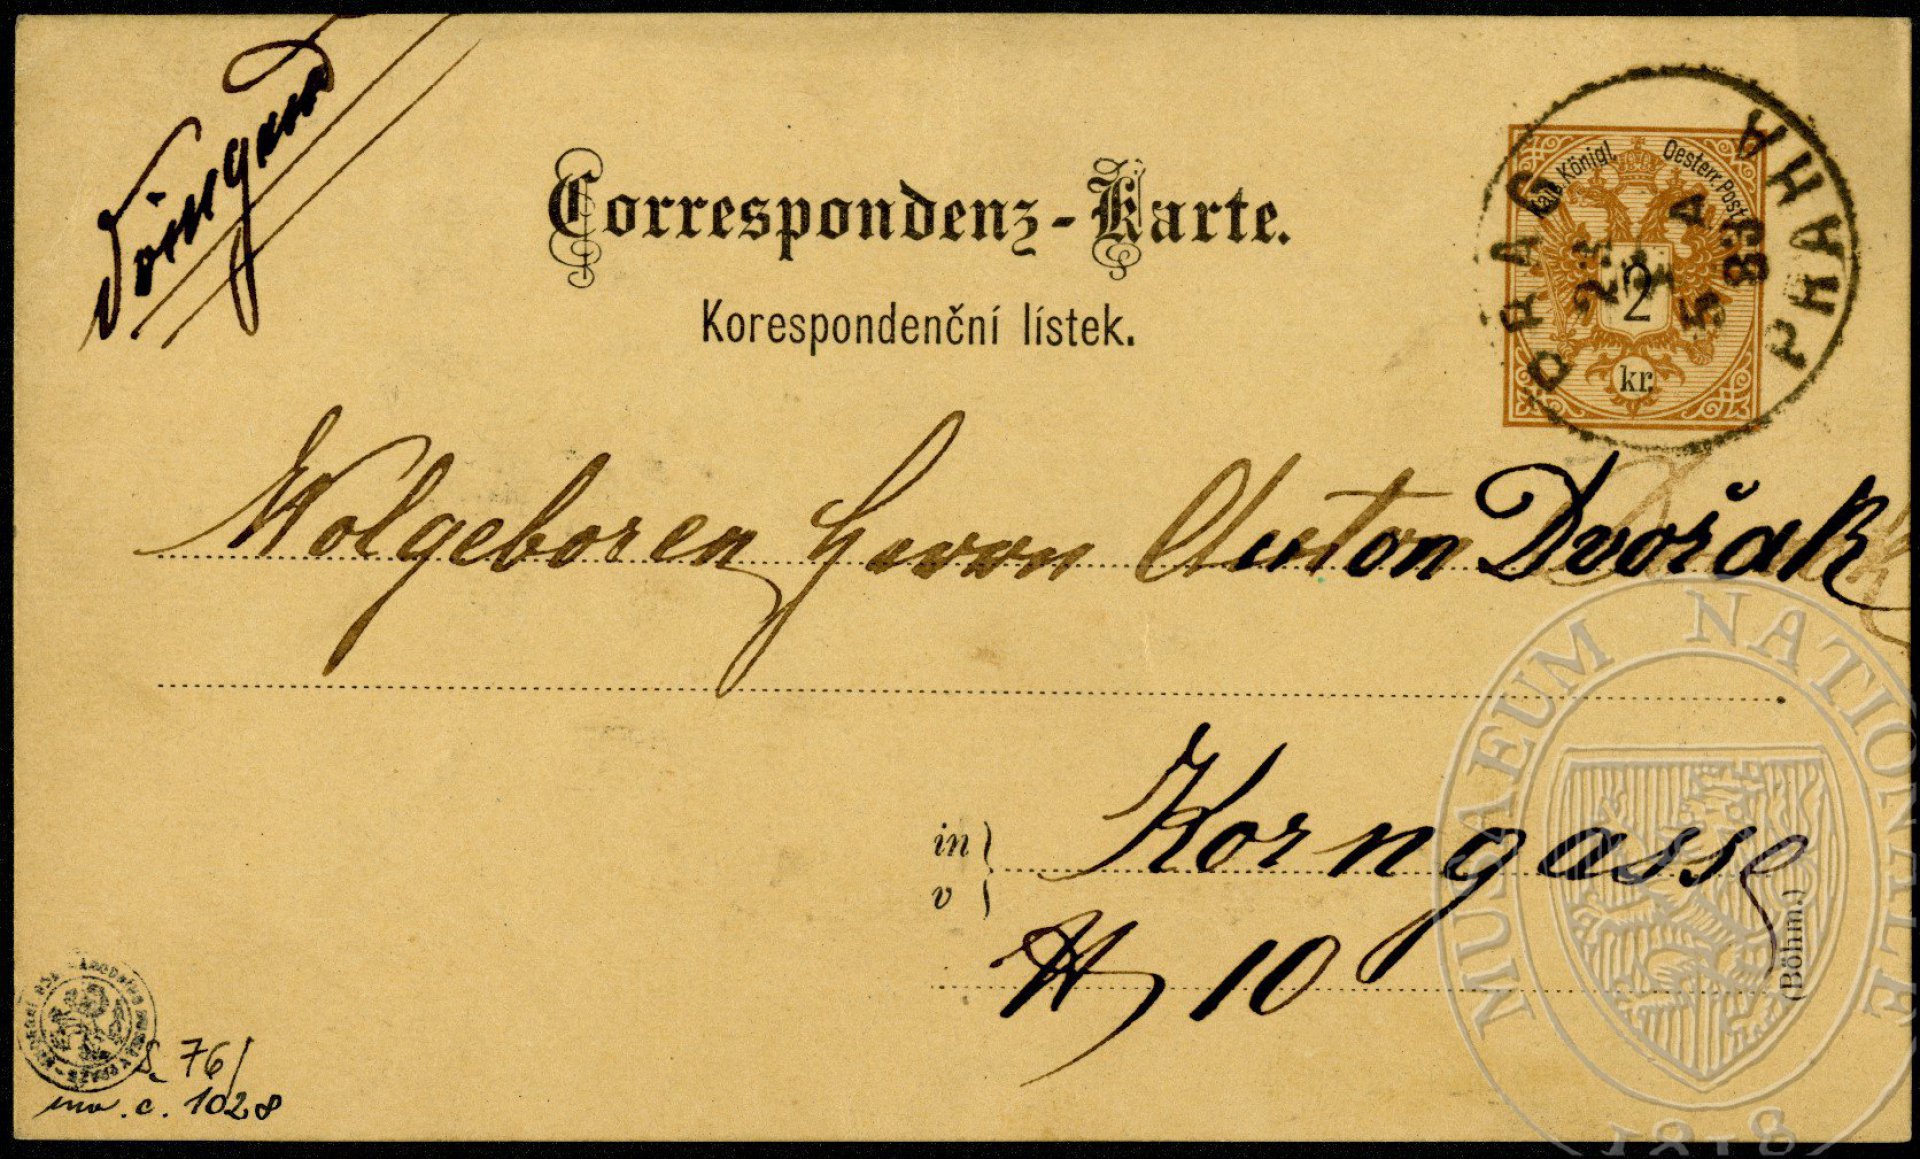 Dringend
Correspondenz-Karte.
Korespondenční lístek.
Kais. Königl. Oesterr. Post
2
kr.
PRAG PRAHA
23
4
5 A
83
Wolgeboren Herrn Anton Dvořák
in
v
Korngasse
N 10
(Böhm.)
S. 76/
inv. c. 1028
MUSAEUM NATIONALE
1818